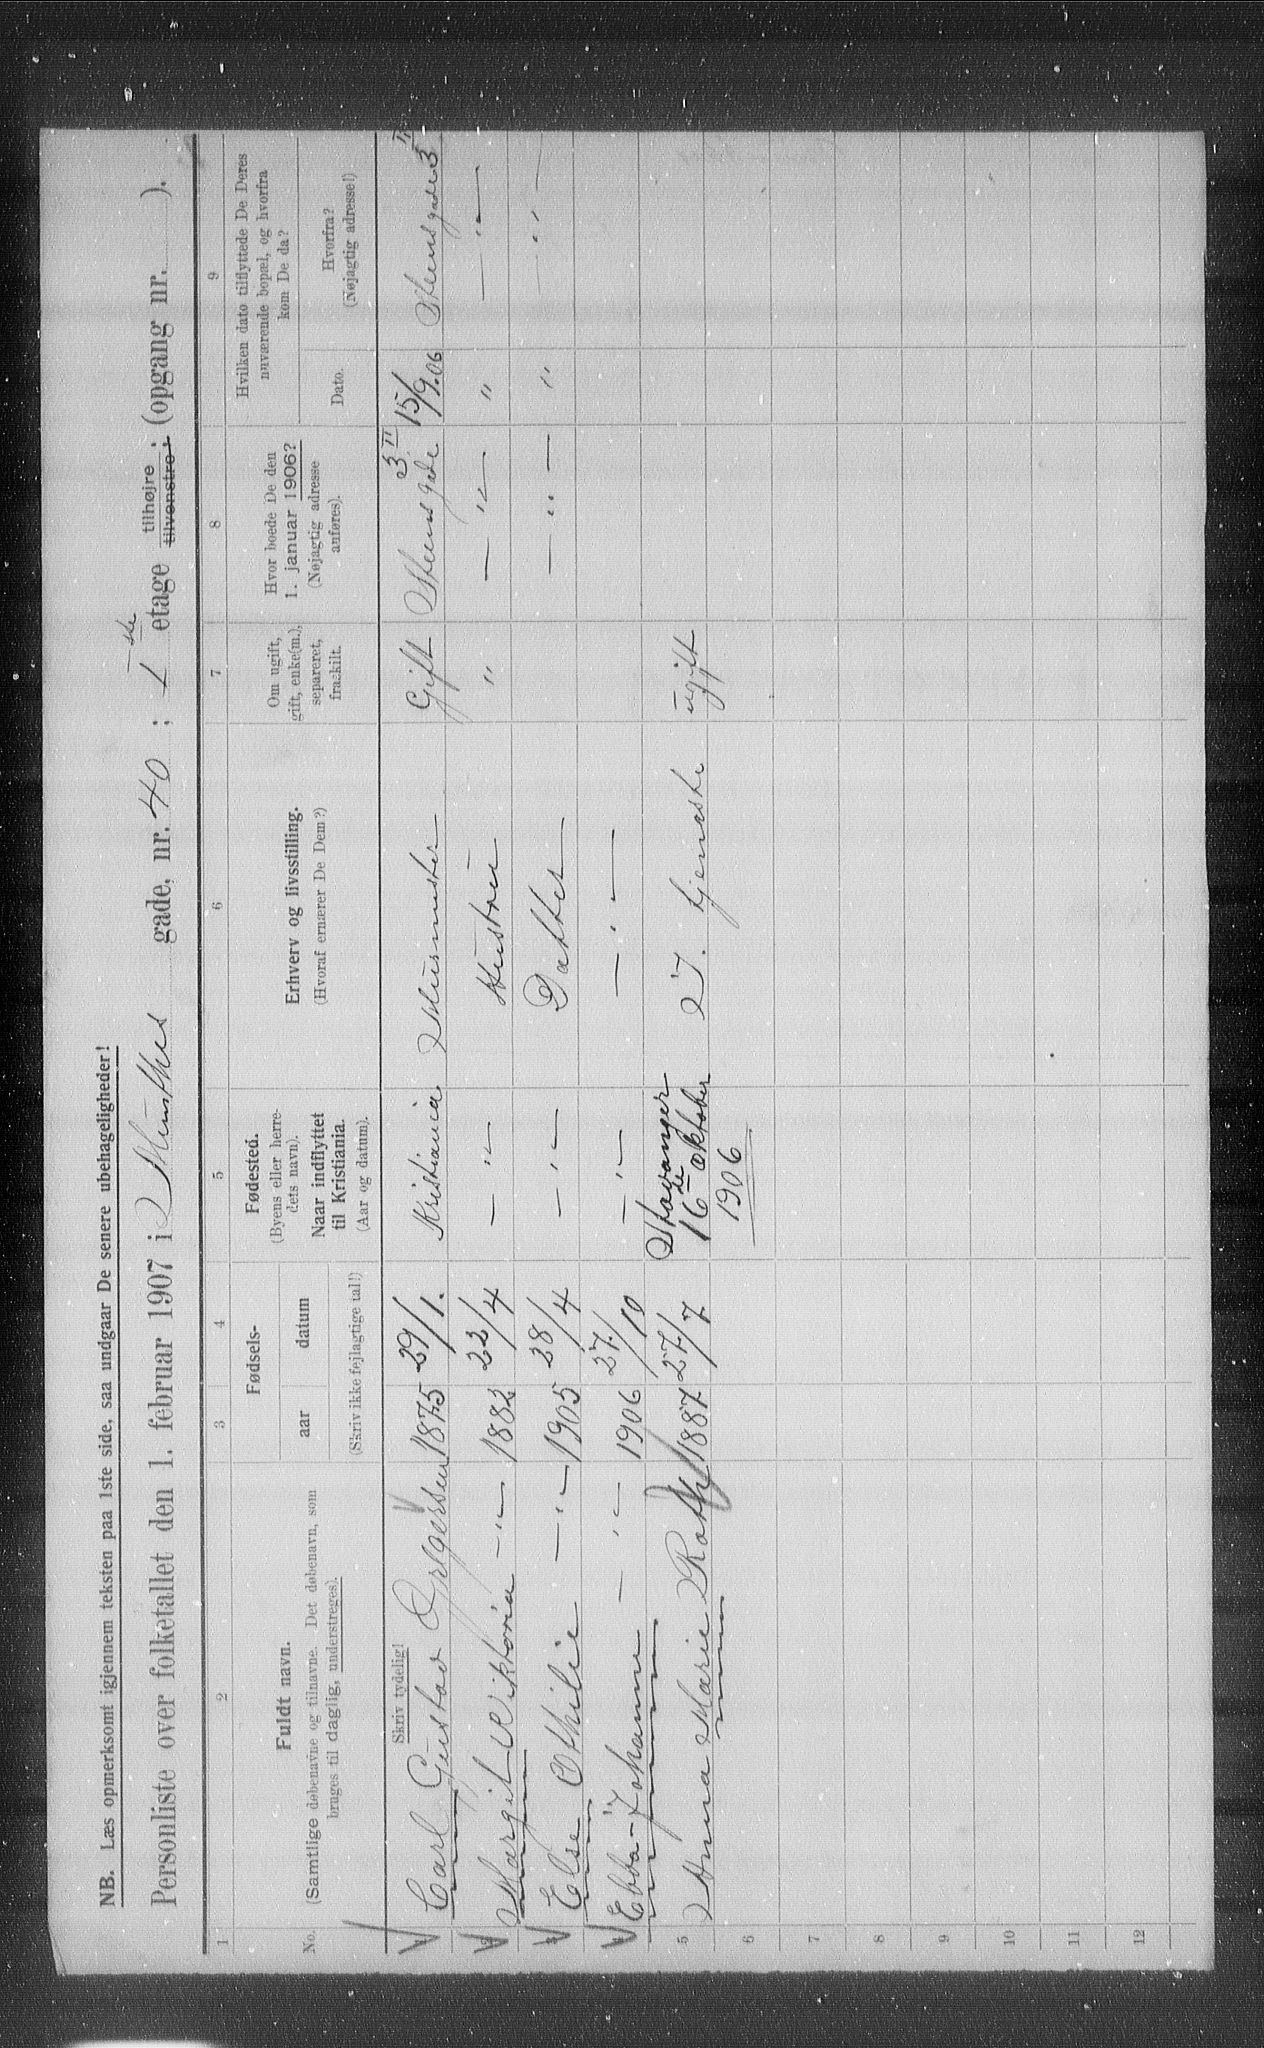 NB. Læs opmerksomt igjennem teksten paa 1ste side, saa undgaar De senere ubehageligheder!
Personliste over folketallet den 1. februar 1907 i Munthes gade, nr. 40 ; 1ste etage tilhøjre ; tilvenstre ; (opgang nr. ).
1 2 3 4 5 6 7 8 9
No.
Fuldt navn.
(Samtlige døbenavne og tilnavne. Det døbenavn, som
bruges til daglig, understreges).
Skriv tydelig!
Fødsels-
aar datum
(Skriv ikke fejlagtige tal!)
Fødested.
(Byens eller herre-
dets navn).
Naar indflyttet
til Kristiania.
(Aar og datum).
Erhverv og livsstilling.
(Hvoraf ernærer De Dem?)
Om ugift,
gift, enke(m.),
separeret,
fraskilt.
Hvor boede De den
1. januar 1906?
(Nøjagtig adresse
anføres).
Hvilken dato tilflyttede De Deres
nuværende bopæl, og hvorfra
kom De da?
Dato.
Hvorfra?
(Nøjagtig adresse!)
Carl Gustav Gregersen 1875 29/1. Kristiania Murmester Gift Steensgade 3 II 15/9.06 Steensgade 3 II
Margit Viktoria — " — 1882 22/4 — " — Hustru " — " — " — " —
Else Othilie — " — 1905 28/4 — " — Datter — " — " — " —
Ebba-Johanne — " — 1906 27/10 — " — — " —
5 Anna Marie Roth 1887 27/7 Stavanger 16de Oktober 1906 I. tjeneste ugift
6
7
8
9
10
11
12